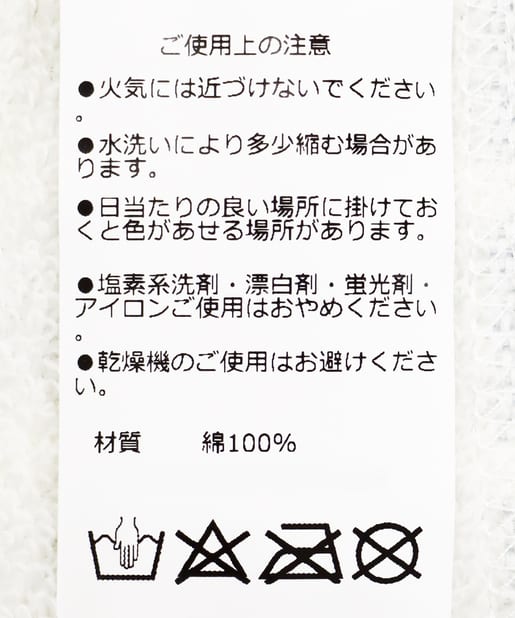 ご使用上の注意
●火気には近づけないでください
。
●水洗いにより多少縮む場合があ
ります。
●日当たりの良い場所に掛けてお
くと色があせる場所があります。
●塩素系洗剤・漂白剤・蛍光剤・
アイロンご使用はおやめください
。
●乾燥機のご使用はお避けくださ
い。
材質 綿100%